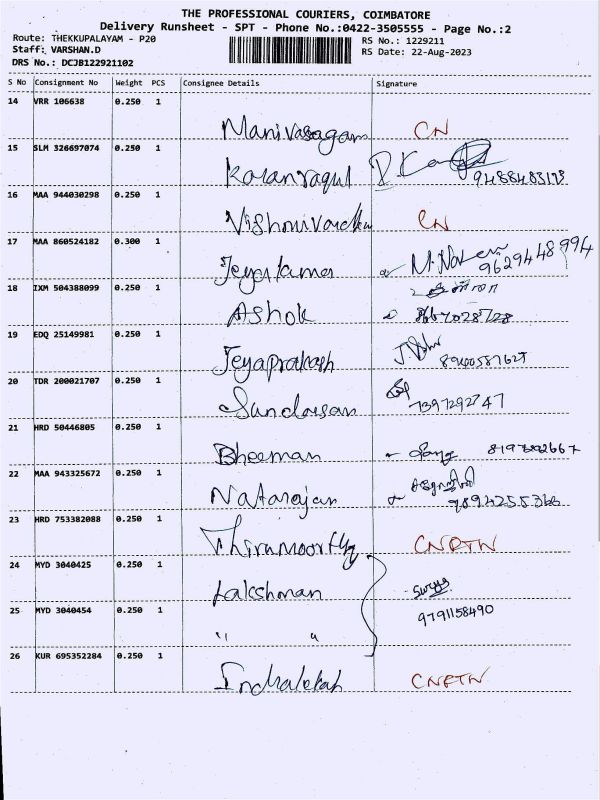 THE PROFESSIONAL COURIERS, COIMBATORE
Delivery Runsheet - SPT - Phone No.:0422-3505555 - Page No.:2
Route: THEKKUPALAYAM - P20
RS No.: 1229211
Staff: VARSHAN.D
RS Date: 22-Aug-2023
DRS No.: DCJB122921102
S No Consignment No Weight PCS Consignee Details Signature
14 VRR 106638 0.250 1
Manivasagam CN
15 SLM 326697074 0.250 1
Karanragul
16 MAA 944030298 0.250 1
CN
17 MAA 860524182 0.300 1
Jeyakumar 9629448994
18 IXM 504388099 0.250 1
Ashok
19 EDQ 25149981 0.250 1
Jeyaprakash
20 TDR 200021707 0.250 1
7397292747
21 HRD 50446805 0.250 1
Bheeman
22 MAA 943325672 0.250 1
Natarajan
23 HRD 753382088 0.250 1
Thirumoorthy CNRTN
24 MYD 3040425 0.250 1
Lakshman
25 MYD 3040454 0.250 1
9791158490
" "
26 KUR 695352284 0.250 1
CNRTN